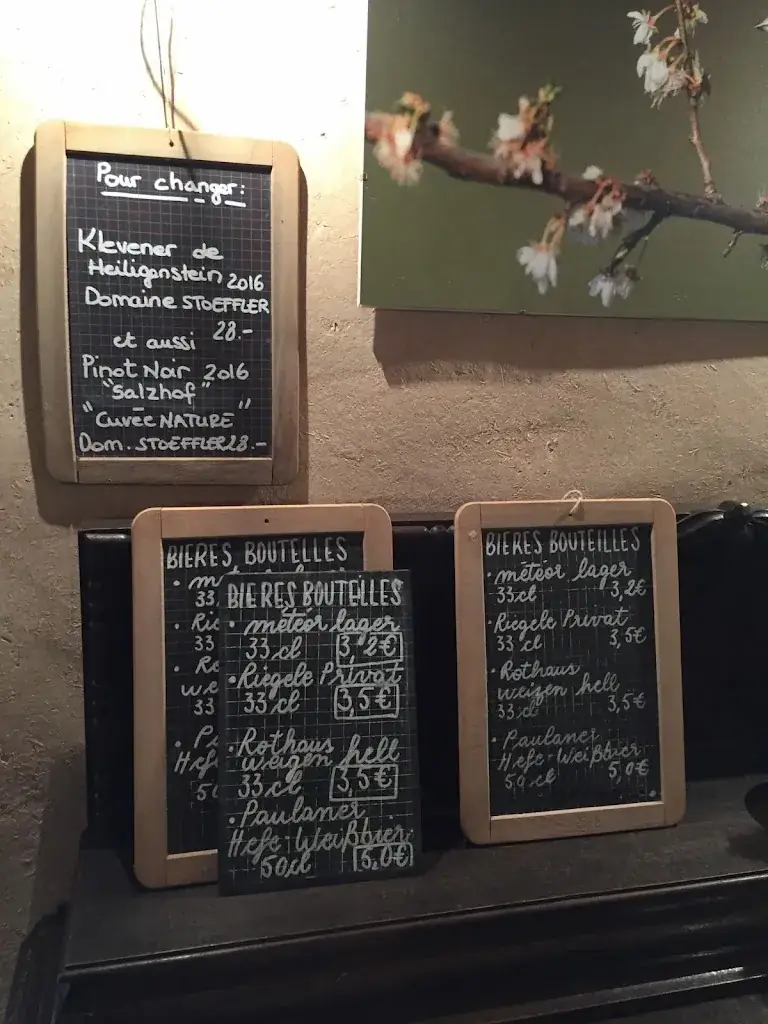 Pour changer:
Klevener de
Heiligenstein 2016
Domaine STOEFFLER
28.-
et aussi
Pinot Noir 2016
"Salzhof"
"Cuvée NATURE"
Dom. STOEFFLER 28.-
BIERES BOUTELLES
• m
33
• Ri
• Ro
we
33
• Pa
Hef
50
BIERES BOUTEILLES
• météor lager
33 cl 3,2€
• Riegele Privat
33 cl 3,5€
• Rothaus
weizen hell
33 cl 3,5€
• Paulaner
Hefe-Weißbier
50cl 5,0€
BIERES BOUTEILLES
• météor lager
33cl 3,2€
• Riegele Privat
33 cl 3,5€
• Rothaus
weizen hell
33 cl 3,5€
• Paulaner
Hefe-Weißbier
50cl 5,0€